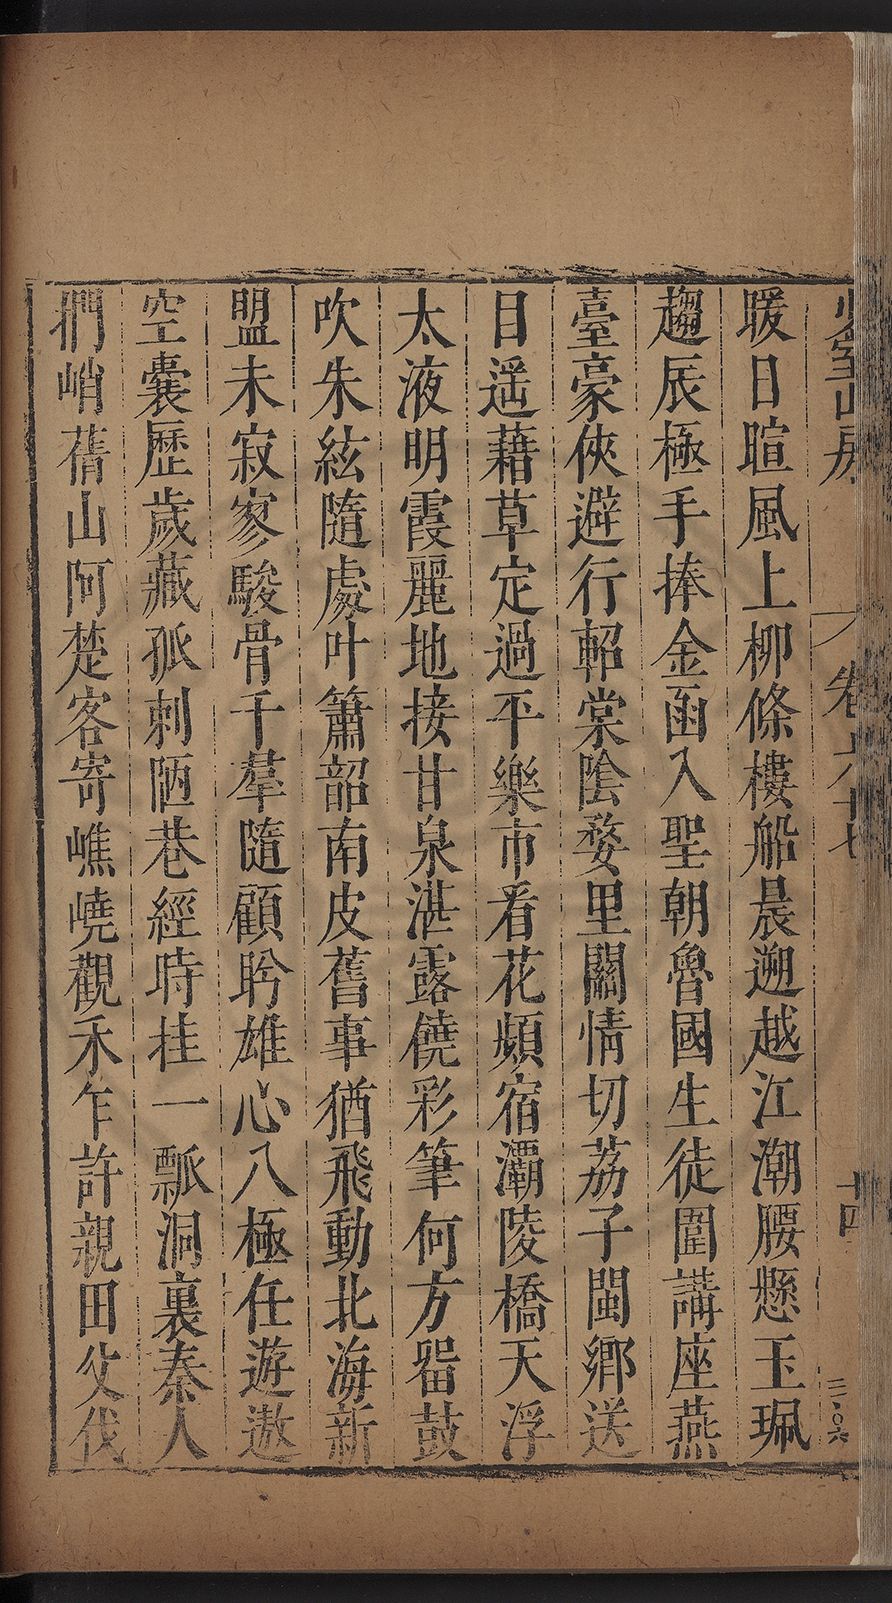 少室山房 卷六十七 十四 三·○六
暖日暄風上柳條樓船晨遡越江潮腰懸玉珮
趨辰極手捧金函入聖朝魯國生徒圍講座燕
臺豪俠避行軺棠陰婺里關情切荔子閩鄉送
目遥藉草定過平樂市看花頻宿灞陵橋天浮
太液明霞麗地接甘泉湛露饒彩筆何方畱鼓
吹朱絃隨處叶簫韶南皮舊事猶飛動北海新
盟未寂寥駿骨千羣隨顧盻雄心八極任遊遨
空囊歷歲藏孤刺陋巷經時挂一瓢洞裏秦人
捫峭蒨山阿楚客寄嶕嶢觀禾乍許親田父伐